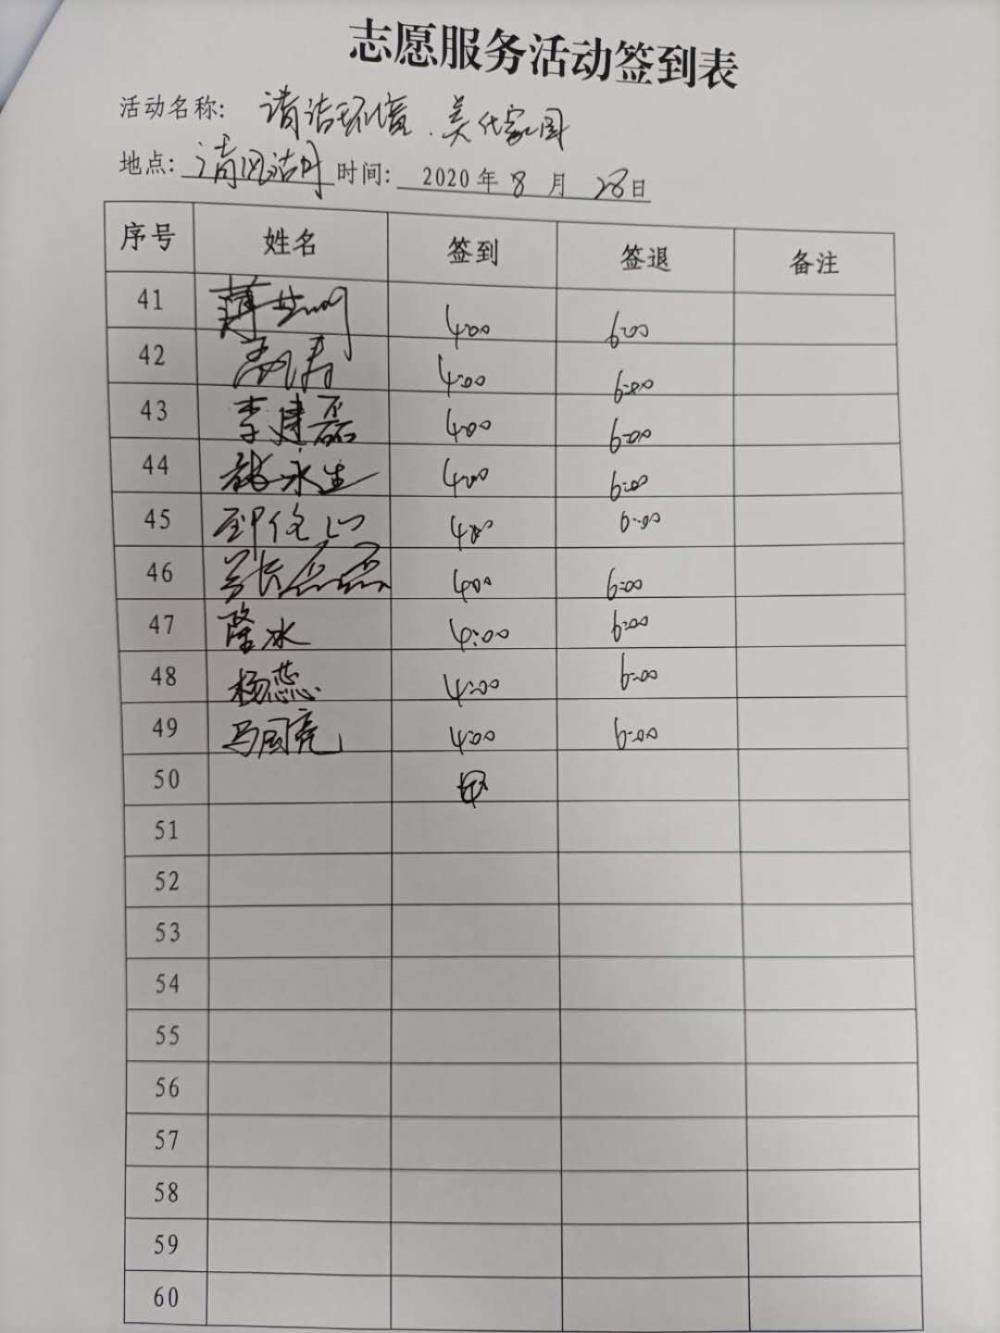 志愿服务活动签到表
活动名称: 清洁环境.美化家园
地点: 清风湖 时间: 2020年8月28日
序号 姓名 签到 签退 备注
41 薄 4:00 6:00
42 高 4:00 6:00
43 李建磊 4:00 6:00
44 永生 4:00 6:00
45 4:00 6:00
46 4:00 6:00
47 隆冰 4:00 6:00
48 杨蕊 4:00 6:00
49 马国亮 4:00 6:00
50
51
52
53
54
55
56
57
58
59
60